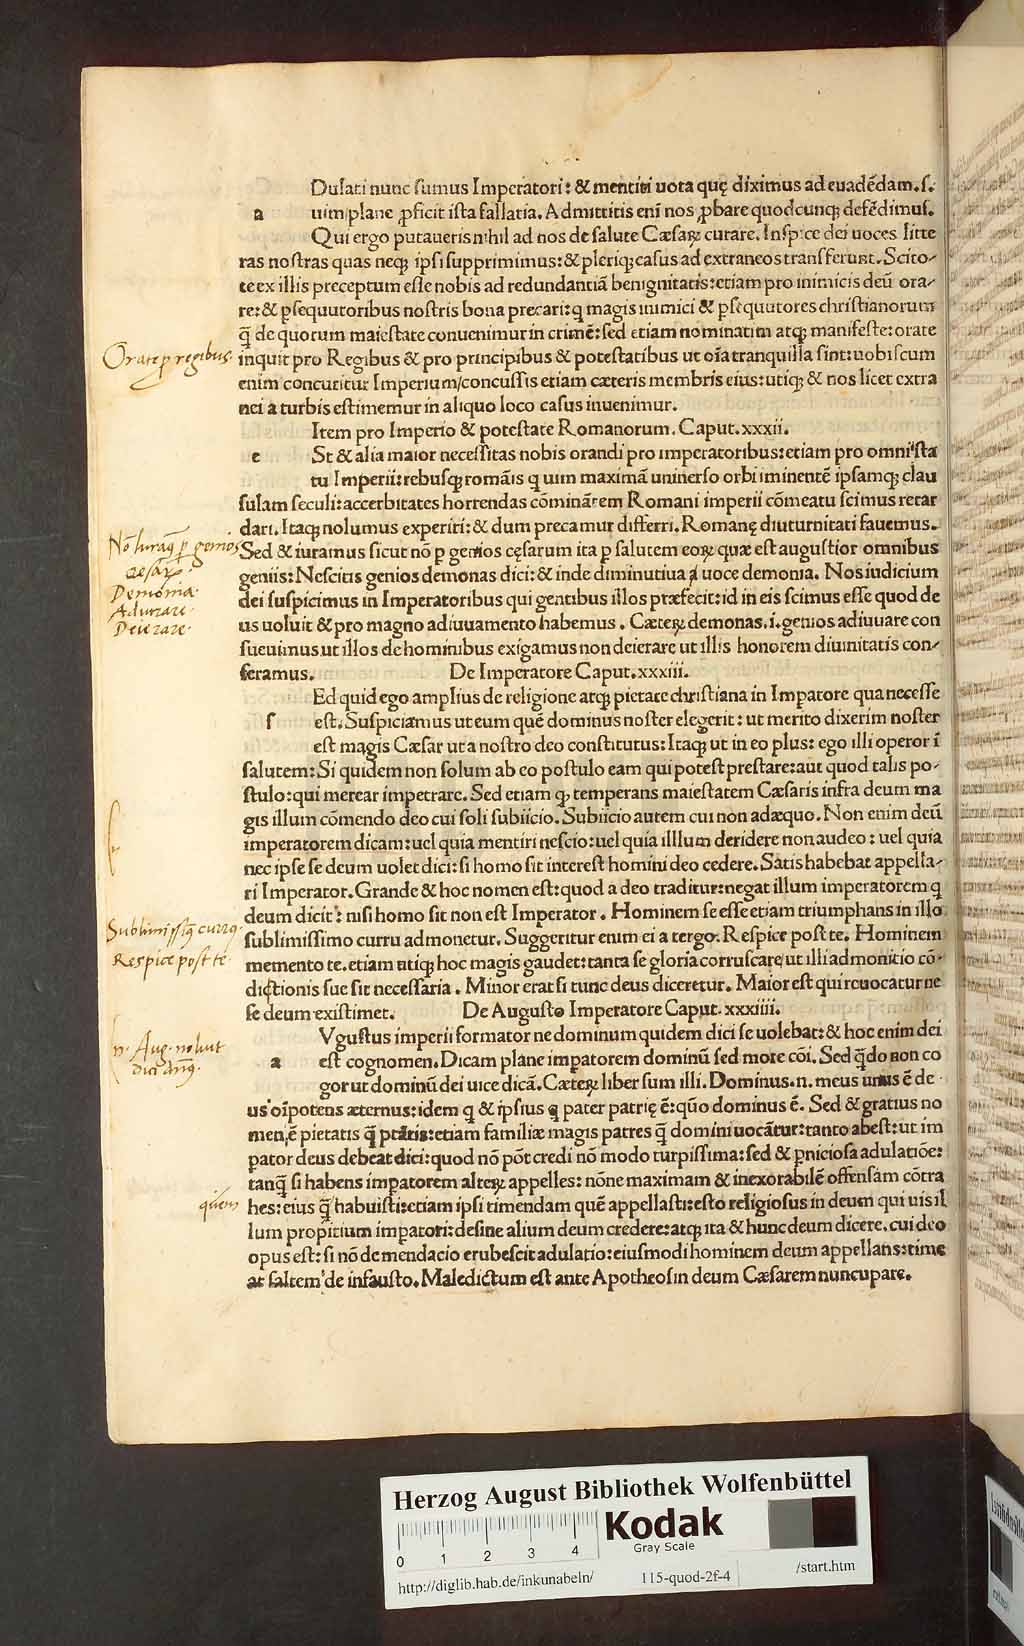 Dulati nunc sumus Imperatori: & mentiti uota quę diximus ad euadẽdam. s.
a uim plane ꝓficit ista fallatia. Admittitis enĩ nos ꝓbare quodcunqꝫ defẽdimus.
Qui ergo putaueris nihil ad nos de salute Cæsaꝝ curare. Inspice dei uoces litte
ras nostras quas neqꝫ ipsi supprimimus: & pleriqꝫ casus ad extraneos transferunt. Scito-
te ex illis preceptum esse nobis ad redundantiã benignitatis: etiam pro inimicis deũ ora-
re: & ꝑsequutoribus nostris bona precari: q magis inimici & ꝑsequutores christianorum
q̃ de quorum maiestate conuenimur in crimẽ: sed etiam nominatim atqꝫ manifeste: orate
Orate ꝑ regibus.
inquit pro Regibus & pro principibus & potestatibus ut oĩa tranquilla sint: uobiscum
enim concutitur Imperium/concussis etiam cæteris membris eius: utiqꝫ & nos licet extra
nei a turbis estimemur in aliquo loco casus inuenimur.
Item pro Imperio & potestate Romanorum. Caput. xxxii.
e St & alia maior necessitas nobis orandi pro imperatoribus: etiam pro omni sta
tu Imperii: rebusqꝫ romãis q uim maximã uniuerso orbi iminentẽ ipsamqꝫ clau
sulam seculi: accerbitates horrendas cõminãtem Romani imperii cõmeatu scimus retar
dari. Itaqꝫ nolumus experiri: & dum precamur differri. Romanę diuturnitati fauemus.
Nõ iuraqꝫ ꝑ genios
Sed & iuramus sicut nõ ꝑ genios cęsarum ita ꝑ salutem eoꝝ quæ est augustior omnibus
cesaꝝ.
geniis: Nescitis genios demonas dici: & inde diminutiua a uoce demonia. Nos iudicium
Demonia.
dei suspicimus in Imperatoribus qui gentibus illos præfecit: id in eis scimus esse quod de
Adiurare.
us uoluit & pro magno adiuuamento habemus. Cæteꝝ demonas. i. genios adiuuare con
Deierare.
sueuimus ut illos de hominibus exigamus non deierare ut illis honorem diuinitatis con-
feramus. De Imperatore Caput. xxxiii.
Ed quid ego amplius de religione atqꝫ pietate christiana in Impatore qua necesse
s est. Suspiciamus ut eum quẽ dominus noster elegerit: ut merito dixerim noster
est magis Cæsar ut a nostro deo constitutus: Itaqꝫ ut in eo plus: ego illi operor ĩ
salutem: Si quidem non solum ab eo postulo eam qui potest prestare: aut quod talis po-
stulo: qui merear impetrare. Sed etiam qꝫ temperans maiestatem Cæsaris infra deum ma
gis illum cõmendo deo cui soli subiicio. Subiicio autem cui non adæquo. Non enim deũ
imperatorem dicam: uel quia mentiri nescio: uel quia illlum deridere non audeo: uel quia
nec ipse se deum uolet dici: si homo sit interest homini deo cedere. Satis habebat appella-
ri Imperator. Grande & hoc nomen est: quod a deo traditur: negat illum imperatorem q
deum dicit: nisi homo sit non est Imperator. Hominem se esse etiam triumphans in illo
Sublimissiq̃ curru.
sublimissimo curru admonetur. Suggeritur enim ei a tergo. Respice post te. Hominem
Respice post te
memento te. etiam utiqꝫ hoc magis gaudet: tanta se gloria corruscare ut illi admonitio cõ-
dictionis sue sit necessaria. Minor erat si tunc deus diceretur. Maior est qui reuocatur ne
se deum existimet. De Augusto Imperatore Caput. xxxiiii.
Vgustus imperii formator ne dominum quidem dici se uolebat: & hoc enim dei
n. Aug. noluit
dici dn̄s.
a est cognomen. Dicam plane impatorem dominũ sed more cõi. Sed q̃do non co
gor ut dominũ dei uice dicã. Cæteꝝ liber sum illi. Dominus. n. meus unus ẽ de
us oĩpotens æternus: idem q & ipsius q pater patrię ẽ: q̃uo dominus ẽ. Sed & gratius no
men ẽ pietatis q̃ ptãtis: etiam familiæ magis patres q̃ domini uocãtur: tanto abest: ut im
pator deus debeat dici: quod nõ põt credi nõ modo turpissima: sed & ꝑniciosa adulatiõe:
tanq̃ si habens impatorem alteꝝ appelles: nõne maximam & inexorabilẽ offensam cõtra
hes: eius q̃ habuisti: etiam ipsi timendam quẽ appellasti: esto religiosus in deum qui uis il
quem
lum propitium impatori: desine alium deum credere: atqꝫ ita & hunc deum dicere. cui deo
opus est: si nõ de mendacio erubescit adulatio: eiusmodi hominem deum appellans: time
at saltem de infausto. Maledictum est ante Apotheosin deum Cæsarem nuncupare.
Herzog August Bibliothek Wolfenbüttel
Kodak
Gray Scale
0 1 2 3 4
http://diglib.hab.de/inkunabeln/ 115-quod-2f-4 /start.htm